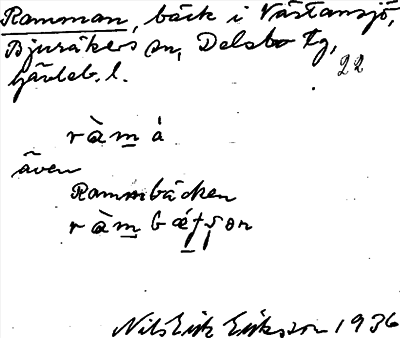 Ramman, bäck i Västansjö,
Bjuråkers sn, Delsbo tg,
Gävleb. l. 22
ràm̲ á
även
Rammbäcken
ràm̲bæ
Nils Erik Eriksson 1936